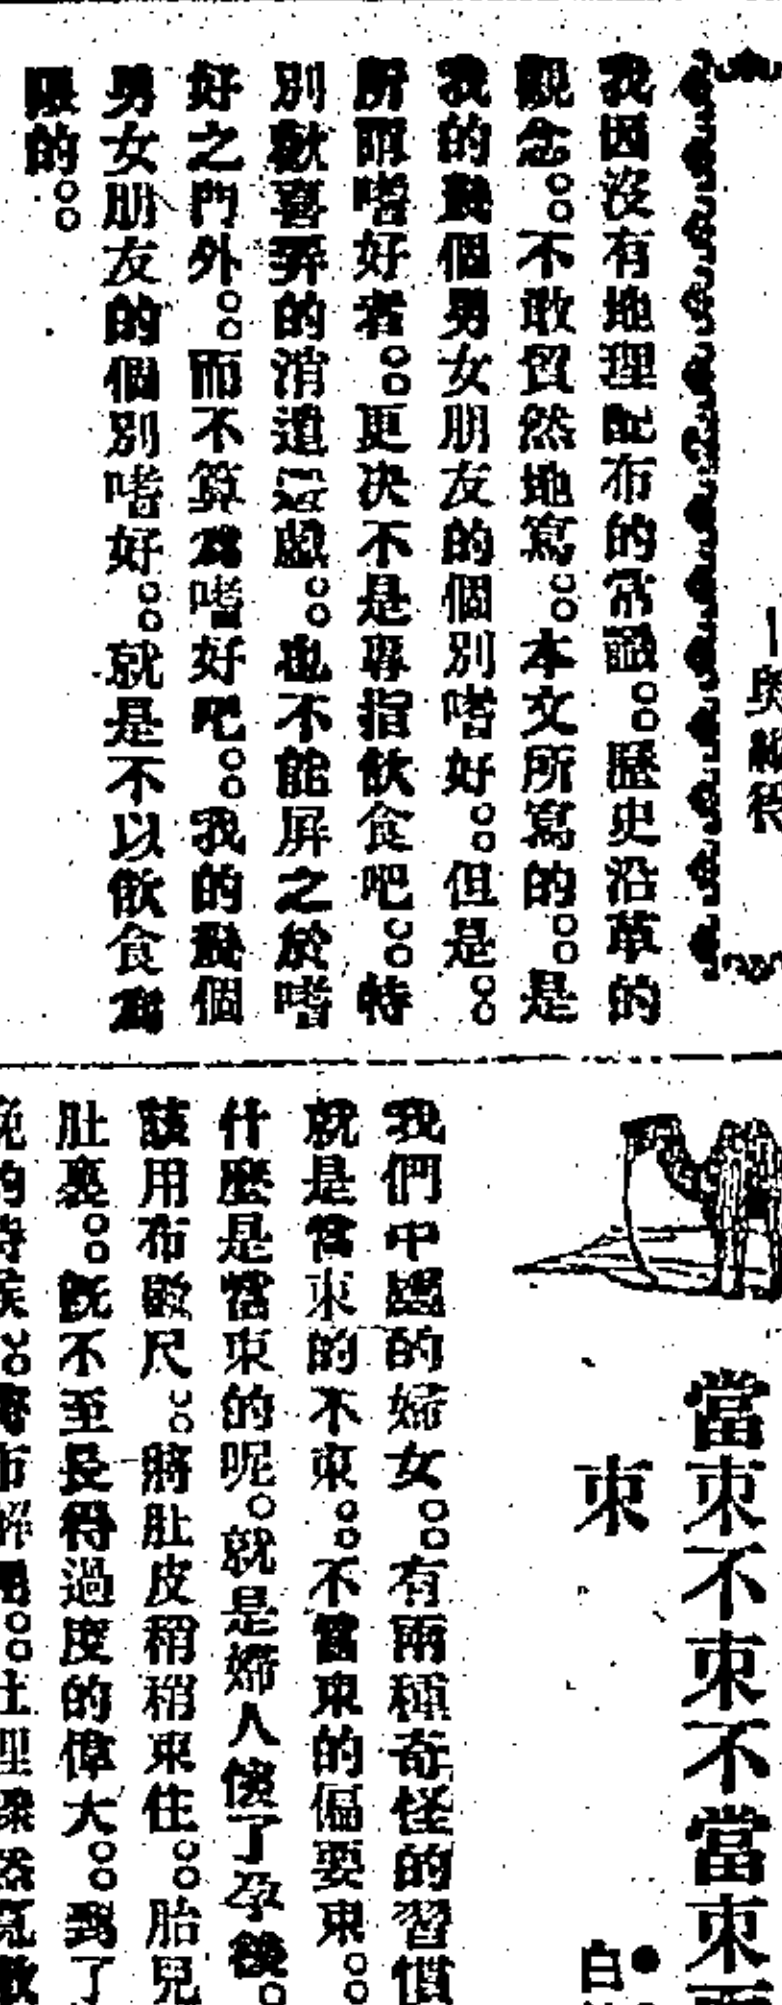 奧
我因沒有地理配布的常識。。歷史沿革的
觀念。。不敢貿然地寫。。本文所寫的。。是
我的幾個男女朋友的個別嗜好。。但是。。
所謂嗜好者。。更决不是專指飲食吧。。特
別歡喜弄的消遣遊戲。。也不能屏之於嗜
好之門外。。而不算爲嗜好吧。。我的幾個
男女朋友的個別嗜好。。就是不以飲食爲
限的。。
當束不束不當束而
束
白
我們中國的婦女。。有兩種奇怪的習慣
就是當束的不束。。不當束的偏要束。。
什麼是當束的呢。就是婦人懷了孕後。
該用布數尺。。將肚皮稍稍束住。。胎兒
肚裏。。旣不至長得過度的偉大。。到了
的時候。。將布解。。生理